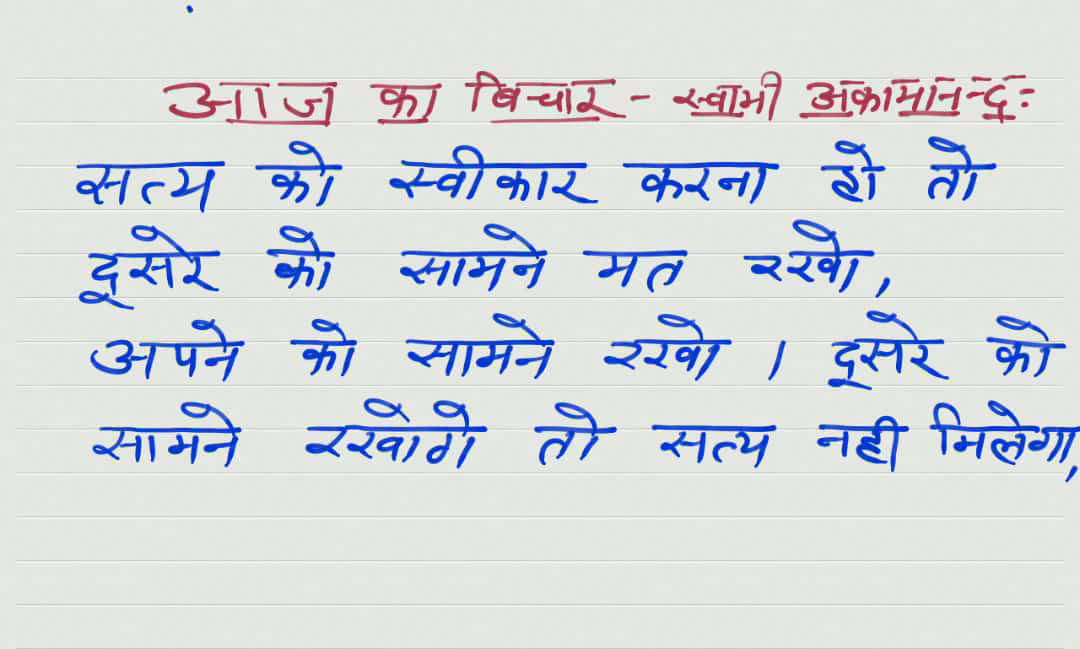 आज का बिचार - स्वामी अकामानन्द:
सत्य को स्वीकार करना हो तो
दूसरे को सामने मत रखो,
अपने को सामने रखो । दूसरे को
सामने रखोगे तो सत्य नही मिलेगा,